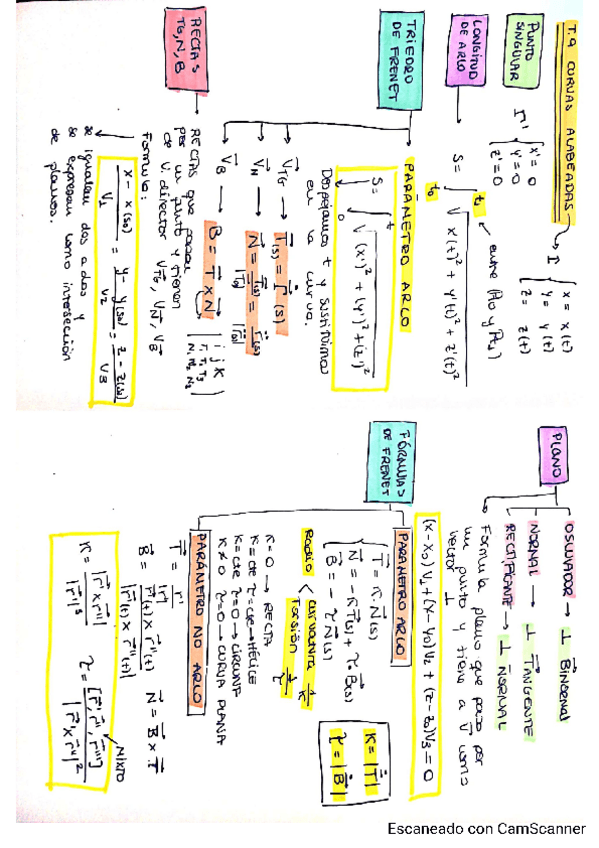 T.9 CURVAS ALABEADAS → Γ { x = x(t)
y = y(t)
z = z(t)
PUNTO SINGULAR
Γ' { x' = 0
y' = 0
z' = 0
LONGITUD DE ARCO
S = ∫ t₀ t₁ √ x'(t)² + y'(t)² + z'(t)²
entre (Pt₀ y Pt₁)
TRIEDRO DE FRENET
PARÁMETRO ARCO
S = ∫ 0 t √ (x')² + (y')² + (z')²
Despejamos t y sustituimos
en la curva.
V⃗TG → T⃗(s) = Γ̇(s)
V⃗N → N⃗ =
V⃗B → B = T⃗ × N⃗
i j k
T₁ T₂ T₃
N₁ N₂ N₃
RECTAS TG, N, B
RECTAS que pasan
por un punto y tienen
de v. director V⃗TG, V⃗N, V⃗B
Fórmula:
x - x(s₀) / V₁ = y - y(s₀) / V₂ = z - z(s₀) / V₃
se igualan dos a dos y
se expresan como intersección
de planos.
PLANO
OSCULADOR → ⊥ BINORMAL
NORMAL → ⊥ TANGENTE
RECTIFICANTE → ⊥ NORMAL
Fórmula plano que pasa por
un punto y tiene a V⃗ como
vector ⊥
(x - x₀) V₁ + (y - y₀) V₂ + (z - z₀) V₃ = 0
FÓRMULAS DE FRENET
PARÁMETRO ARCO
Ṫ = K · N(s)
Ṅ = -K T(s) + τ · B(s)
Ḃ = - τ N(s)
K = |Ṫ|
τ = |Ḃ|
Radio < curvatura 1/K
Torsión 1/τ
K = 0 → RECTA
K = cte τ = cte → HÉLICE
K = cte τ = 0 → CIRCUNF
K ≠ 0 τ = 0 → CURVA PLANA
PARÁMETRO NO ARCO
T⃗ = r' / |r'|
B⃗ = r'(t) × r''(t) / |r'(t) × r''(t)|
N⃗ = B⃗ × T⃗
K = |r' × r''| / |r'|³
τ = [r', r'', r'''] / |r' × r''|²
MIXTO
Escaneado con CamScanner